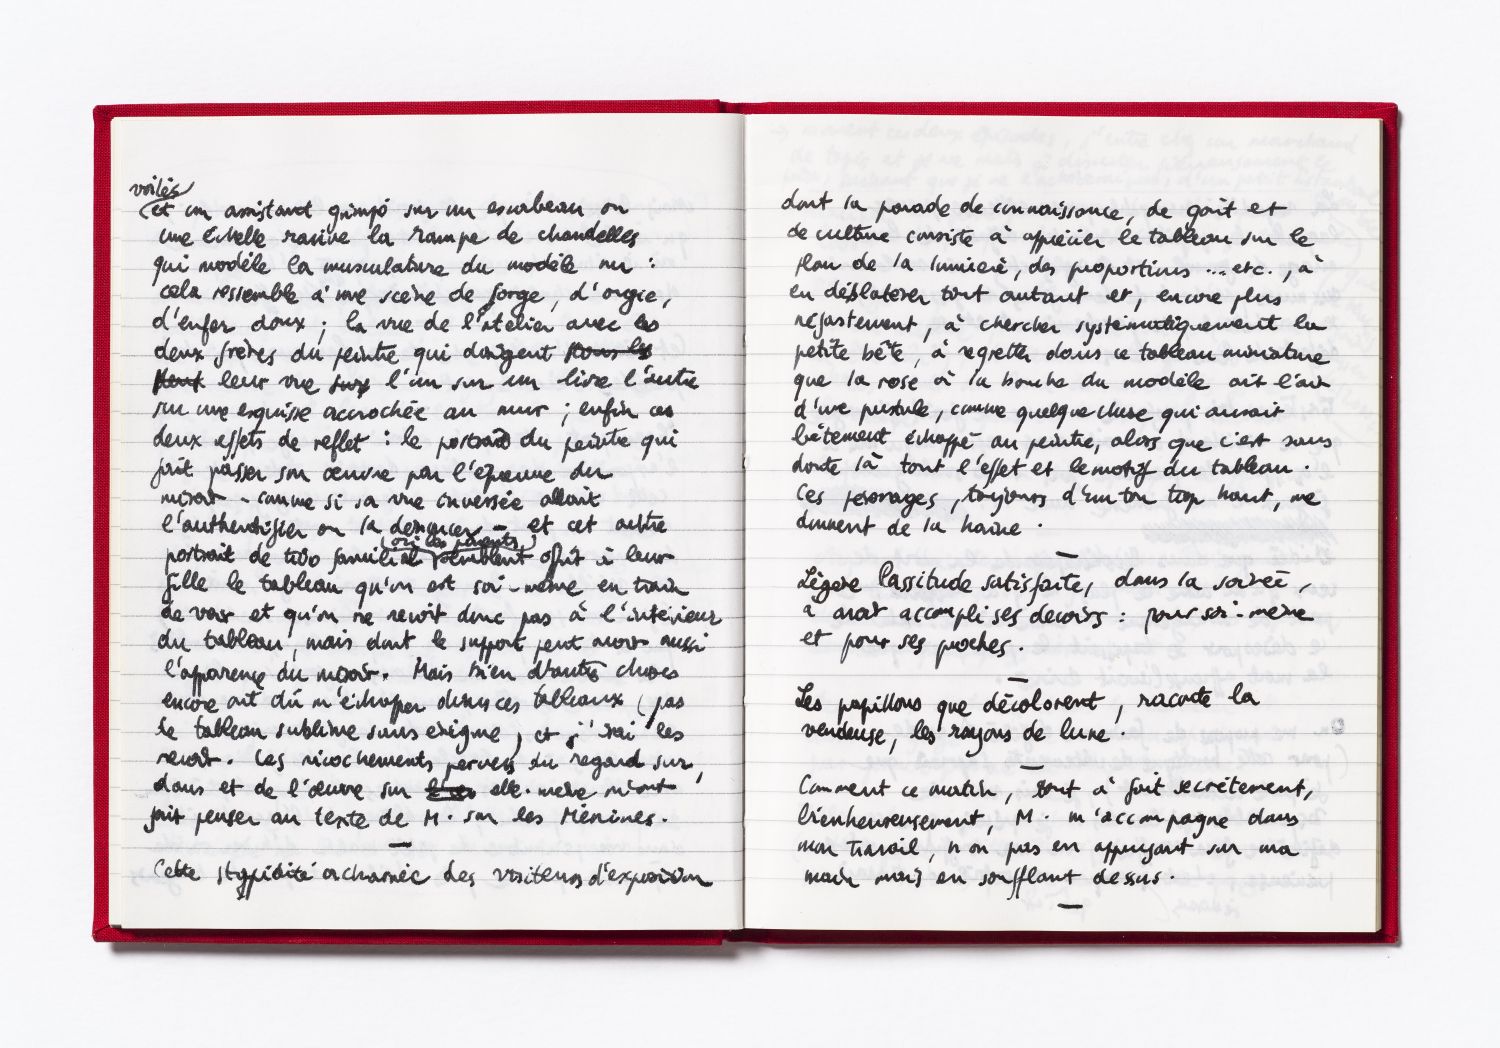 voilés
et un assistant grimpé sur un escabeau ou
une échelle ravive la rampe de chandelles
qui modèle la musculature du modèle nu :
cela ressemble à une scène de forge, d'orgie,
d'enfer doux ; la vue de l'atelier avec les
deux frères du peintre qui dirigent
leur vue l'un sur un livre l'autre
sur une esquisse accrochée au mur ; enfin ces
deux effets de reflet : le portrait du peintre qui
fait passer son œuvre par l'épreuve du
miroir - comme si sa vue inversée allait
l'authentifier ou la dénoncer - et cet autre
(où les parents)
portrait de trio familial semblent offrir à leur
fille le tableau qu'on est soi-même en train
de voir et qu'on ne revoit donc pas à l'intérieur
du tableau, mais dont le support peut avoir aussi
l'apparence du miroir. Mais bien d'autres choses
encore ont dû m'échapper dans ces tableaux (pas
le tableau sublime sans énigme, et j'irai les
revoir. Ces ricochements pervers du regard sur,
dans et de l'œuvre sur elle-même m'ont
fait penser au texte de M. sur les Ménines.
—
Cette stupidité acharnée des visiteurs d'exposition
dont la parade de connaissance, de goût et
de culture consiste à apprécier le tableau sur le
plan de la lumière, des proportions ... etc., à
en déblatérer tout autant et, encore plus
néfastement, à chercher systématiquement la
petite bête, à regretter dans ce tableau miniature
que la rose à la bouche du modèle ait l'air
d'une pustule, comme quelque chose qui aurait
bêtement échappé au peintre, alors que c'est sans
doute là tout l'effet et le motif du tableau.
Ces, toujours d'un ton trop haut, me
donnent de la haine.
—
Légère lassitude satisfaite, dans la soirée,
à avoir accompli ses devoirs : pour soi-même
et pour ses proches.
—
Les papillons que décolorent, raconte la
vendeuse, les rayons de lune.
—
Comment ce matin, tout à fait secrètement,
bienheureusement, M. m'accompagne dans
mon travail, non pas en appuyant sur ma
main mais en soufflant dessus.
—